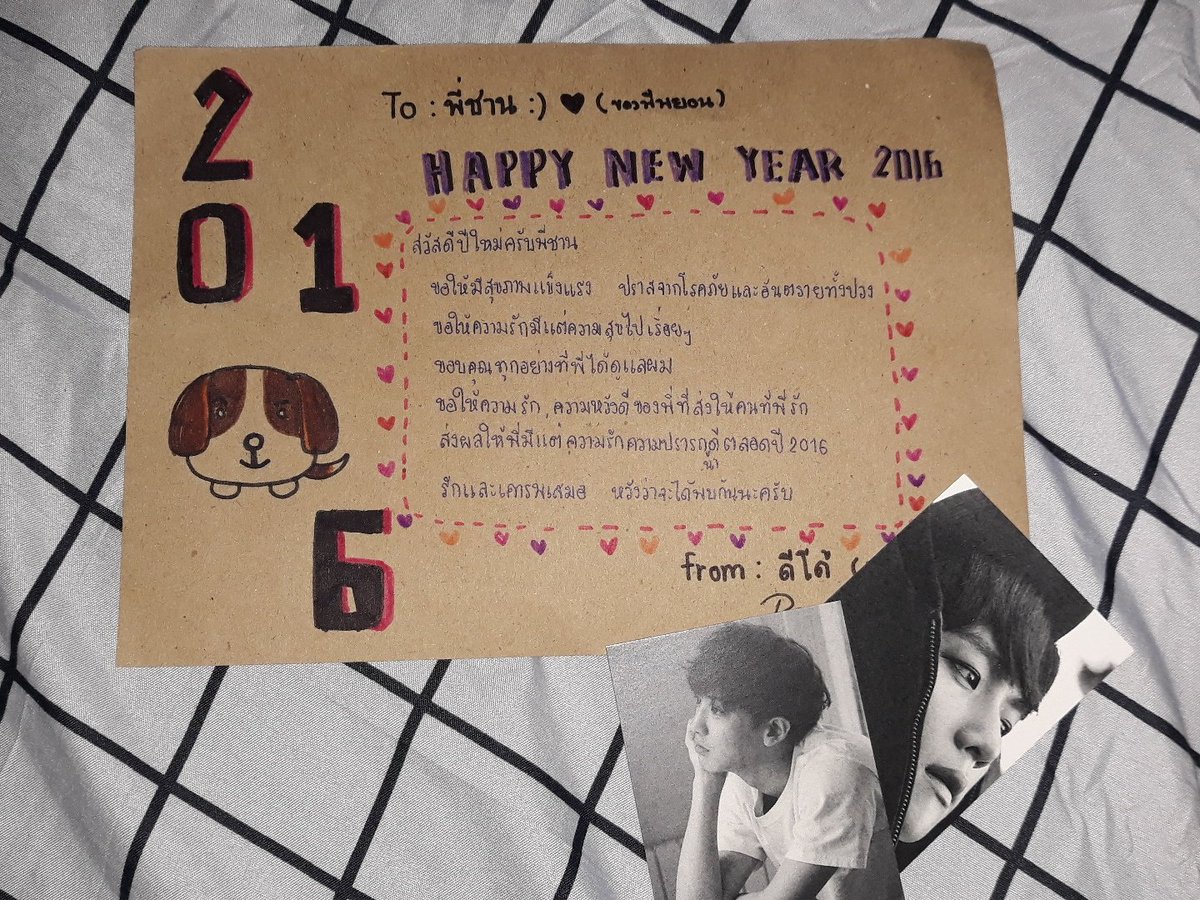 2
01
6
To : พี่ชาน :) ♥ (ของพี่พยอน)
HAPPY NEW YEAR 2016
สวัสดีปีใหม่ครับพี่ชาน
ขอให้มีสุขภาพแข็งแรง ปราสจากโรคภัยและอันตรายทั้งปวง
ขอให้ความรักมีแต่ความสุขไปเรื่อยๆ
ขอบคุณทุกอย่างที่พี่ได้ดูแลผม
ขอให้ความรัก ความหวังดีของพี่ที่ส่งให้คนที่พี่รัก
ส่งผลให้พี่มีแต่ความรักความปรารถนาดีตลอดปี 2016
รักและเคารพเสมอ หวังว่าจะได้พบกันนะครับ
from : ดีโด้